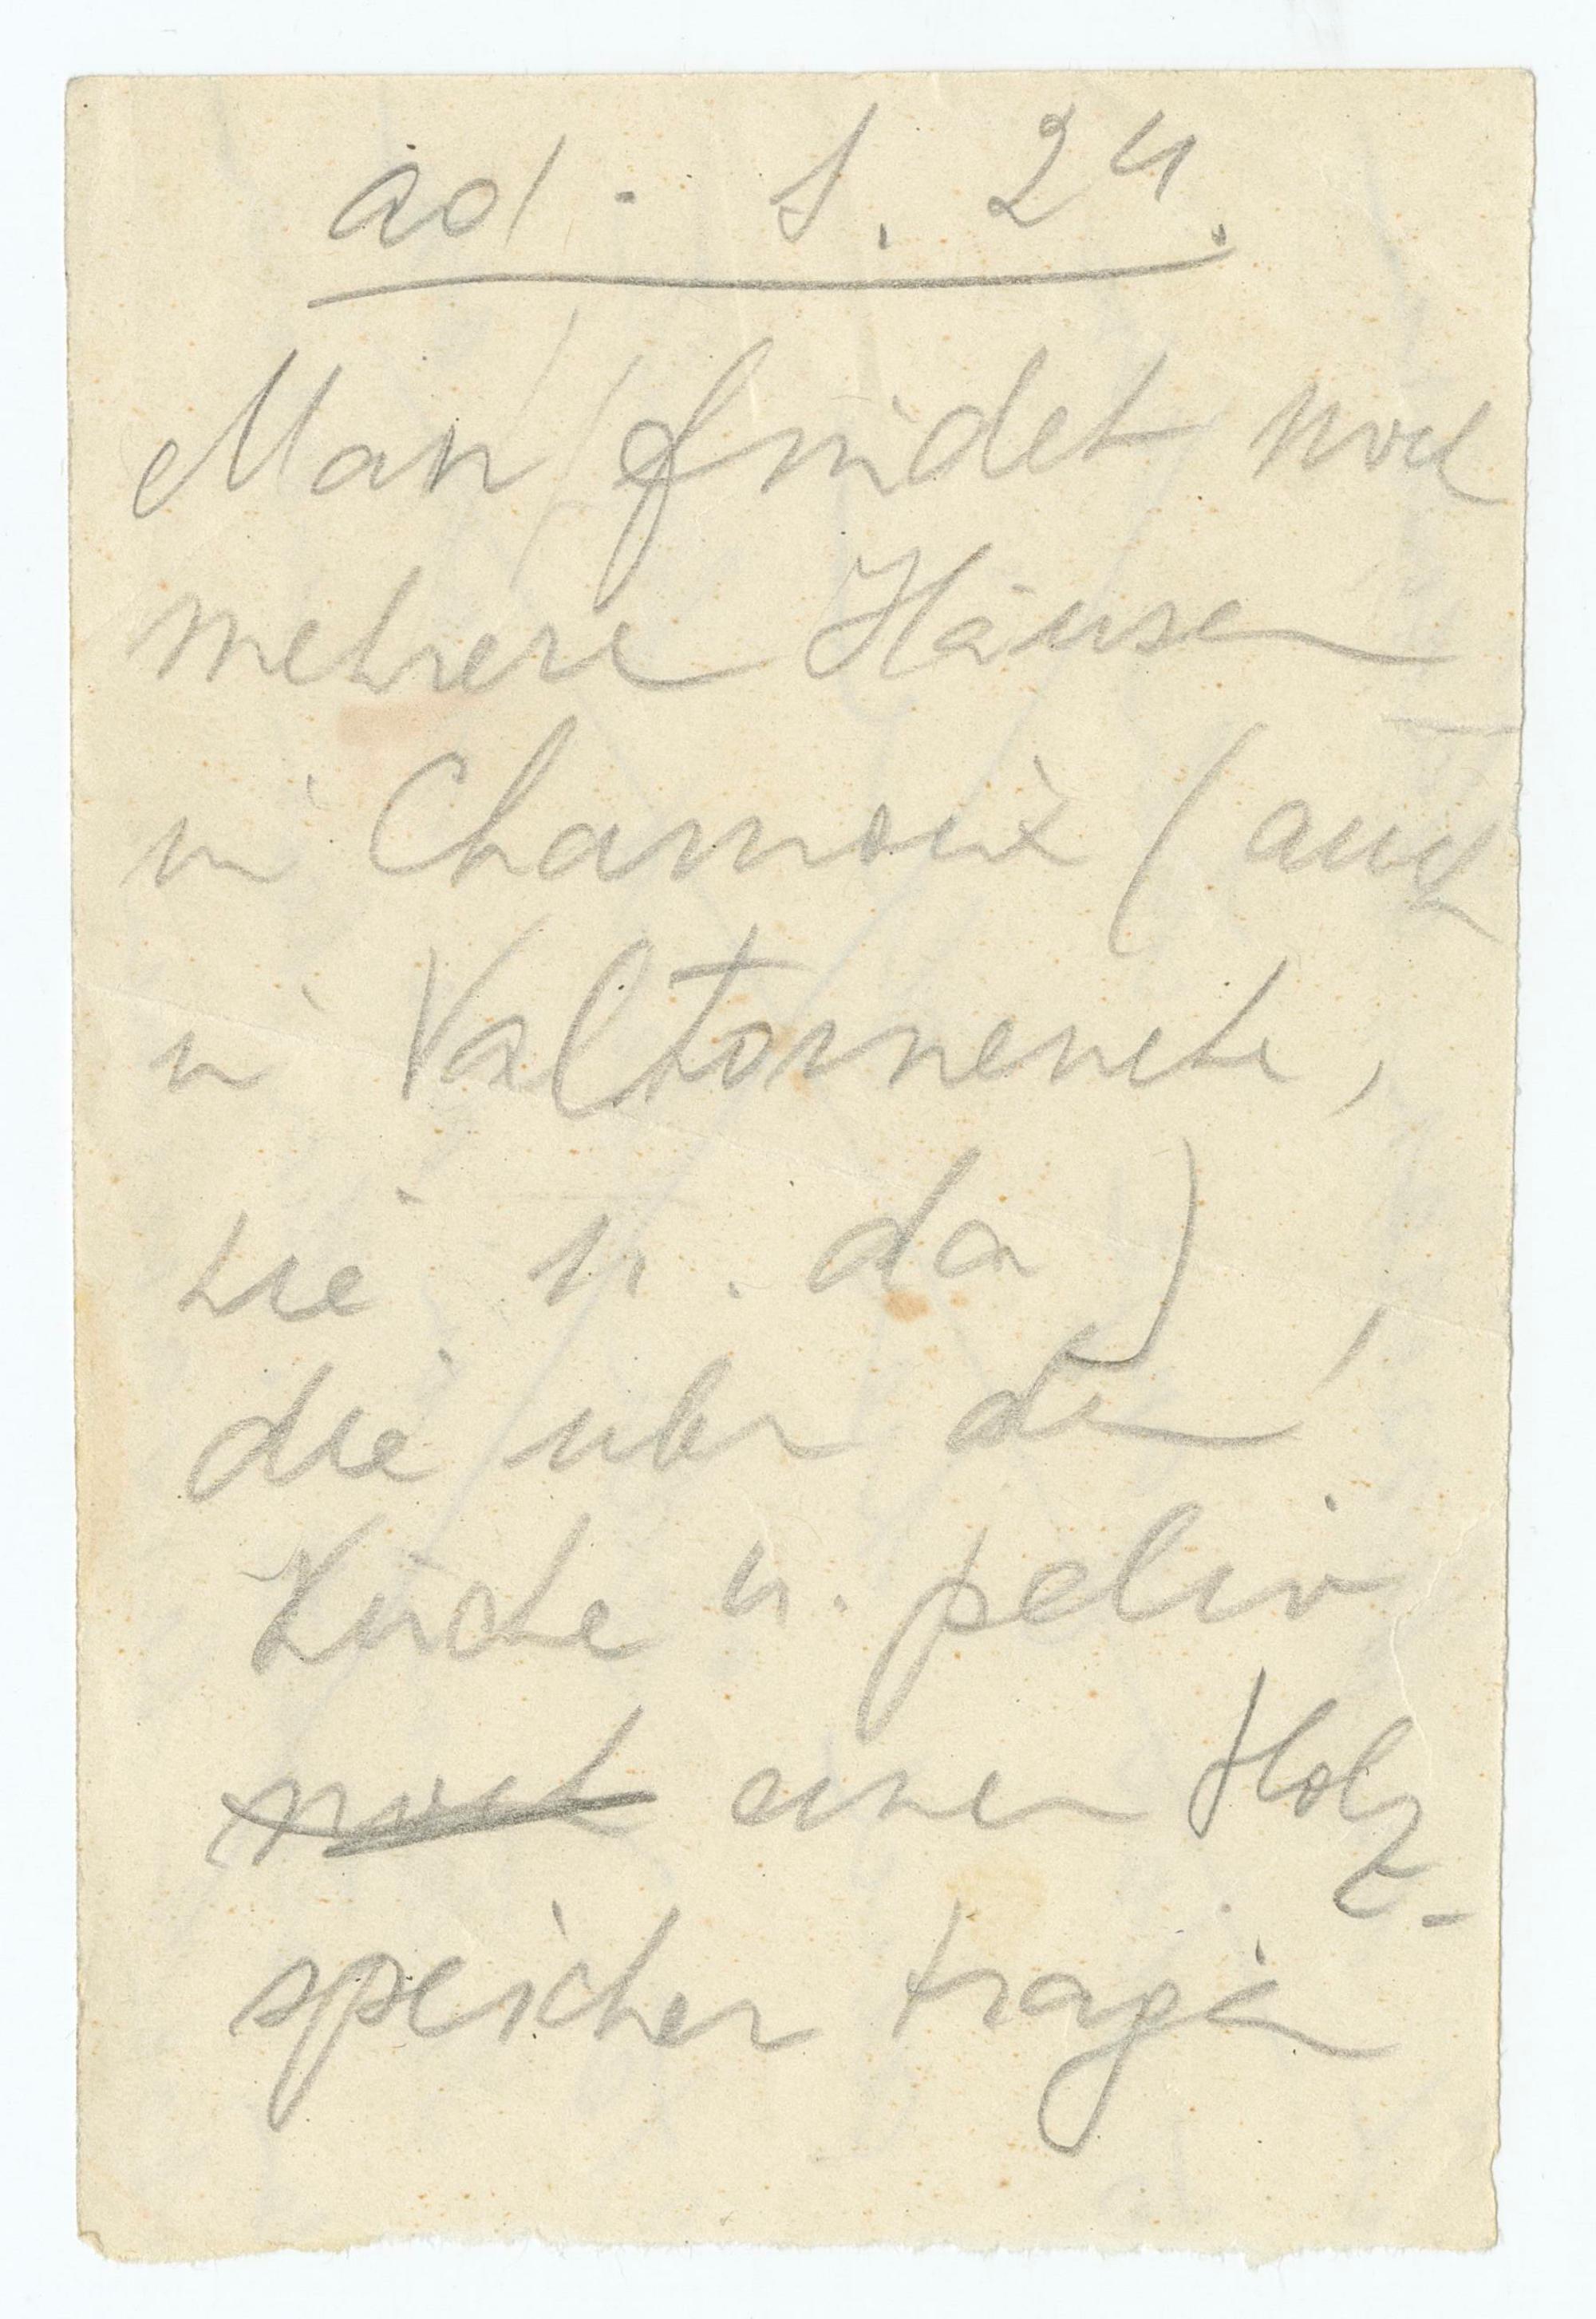 ad. S. 24.
Man findet noch
mehrere Häuser
in Chamoix (auch
in Valtornenche,
hie u. da)
die über der
Küche u. peliò
noch einen Holz-
speicher tragen